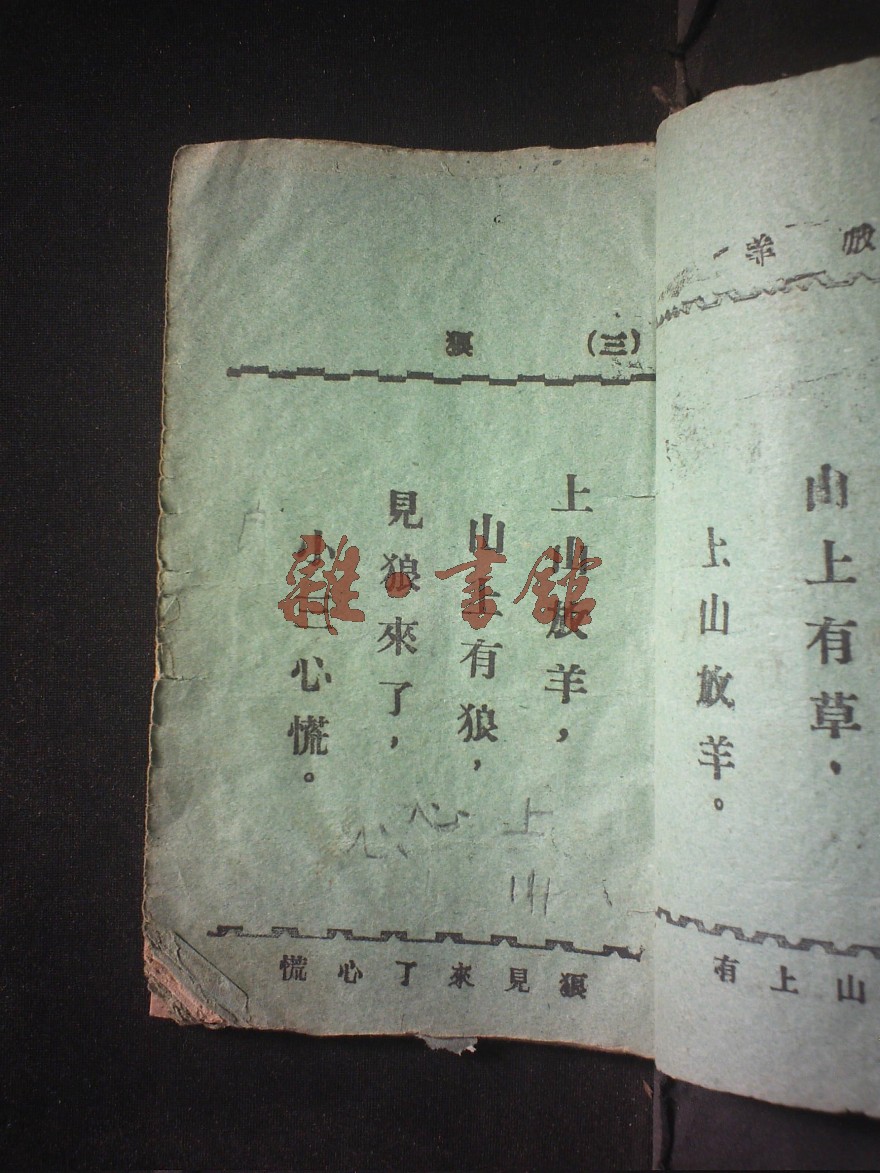 放羊
山上有草，
上山放羊。
山上有
(三) 狼
上山放羊，
山上有狼，
見狼來了，
小三心慌。
上
心
心
狼見來了心慌
雜·書館